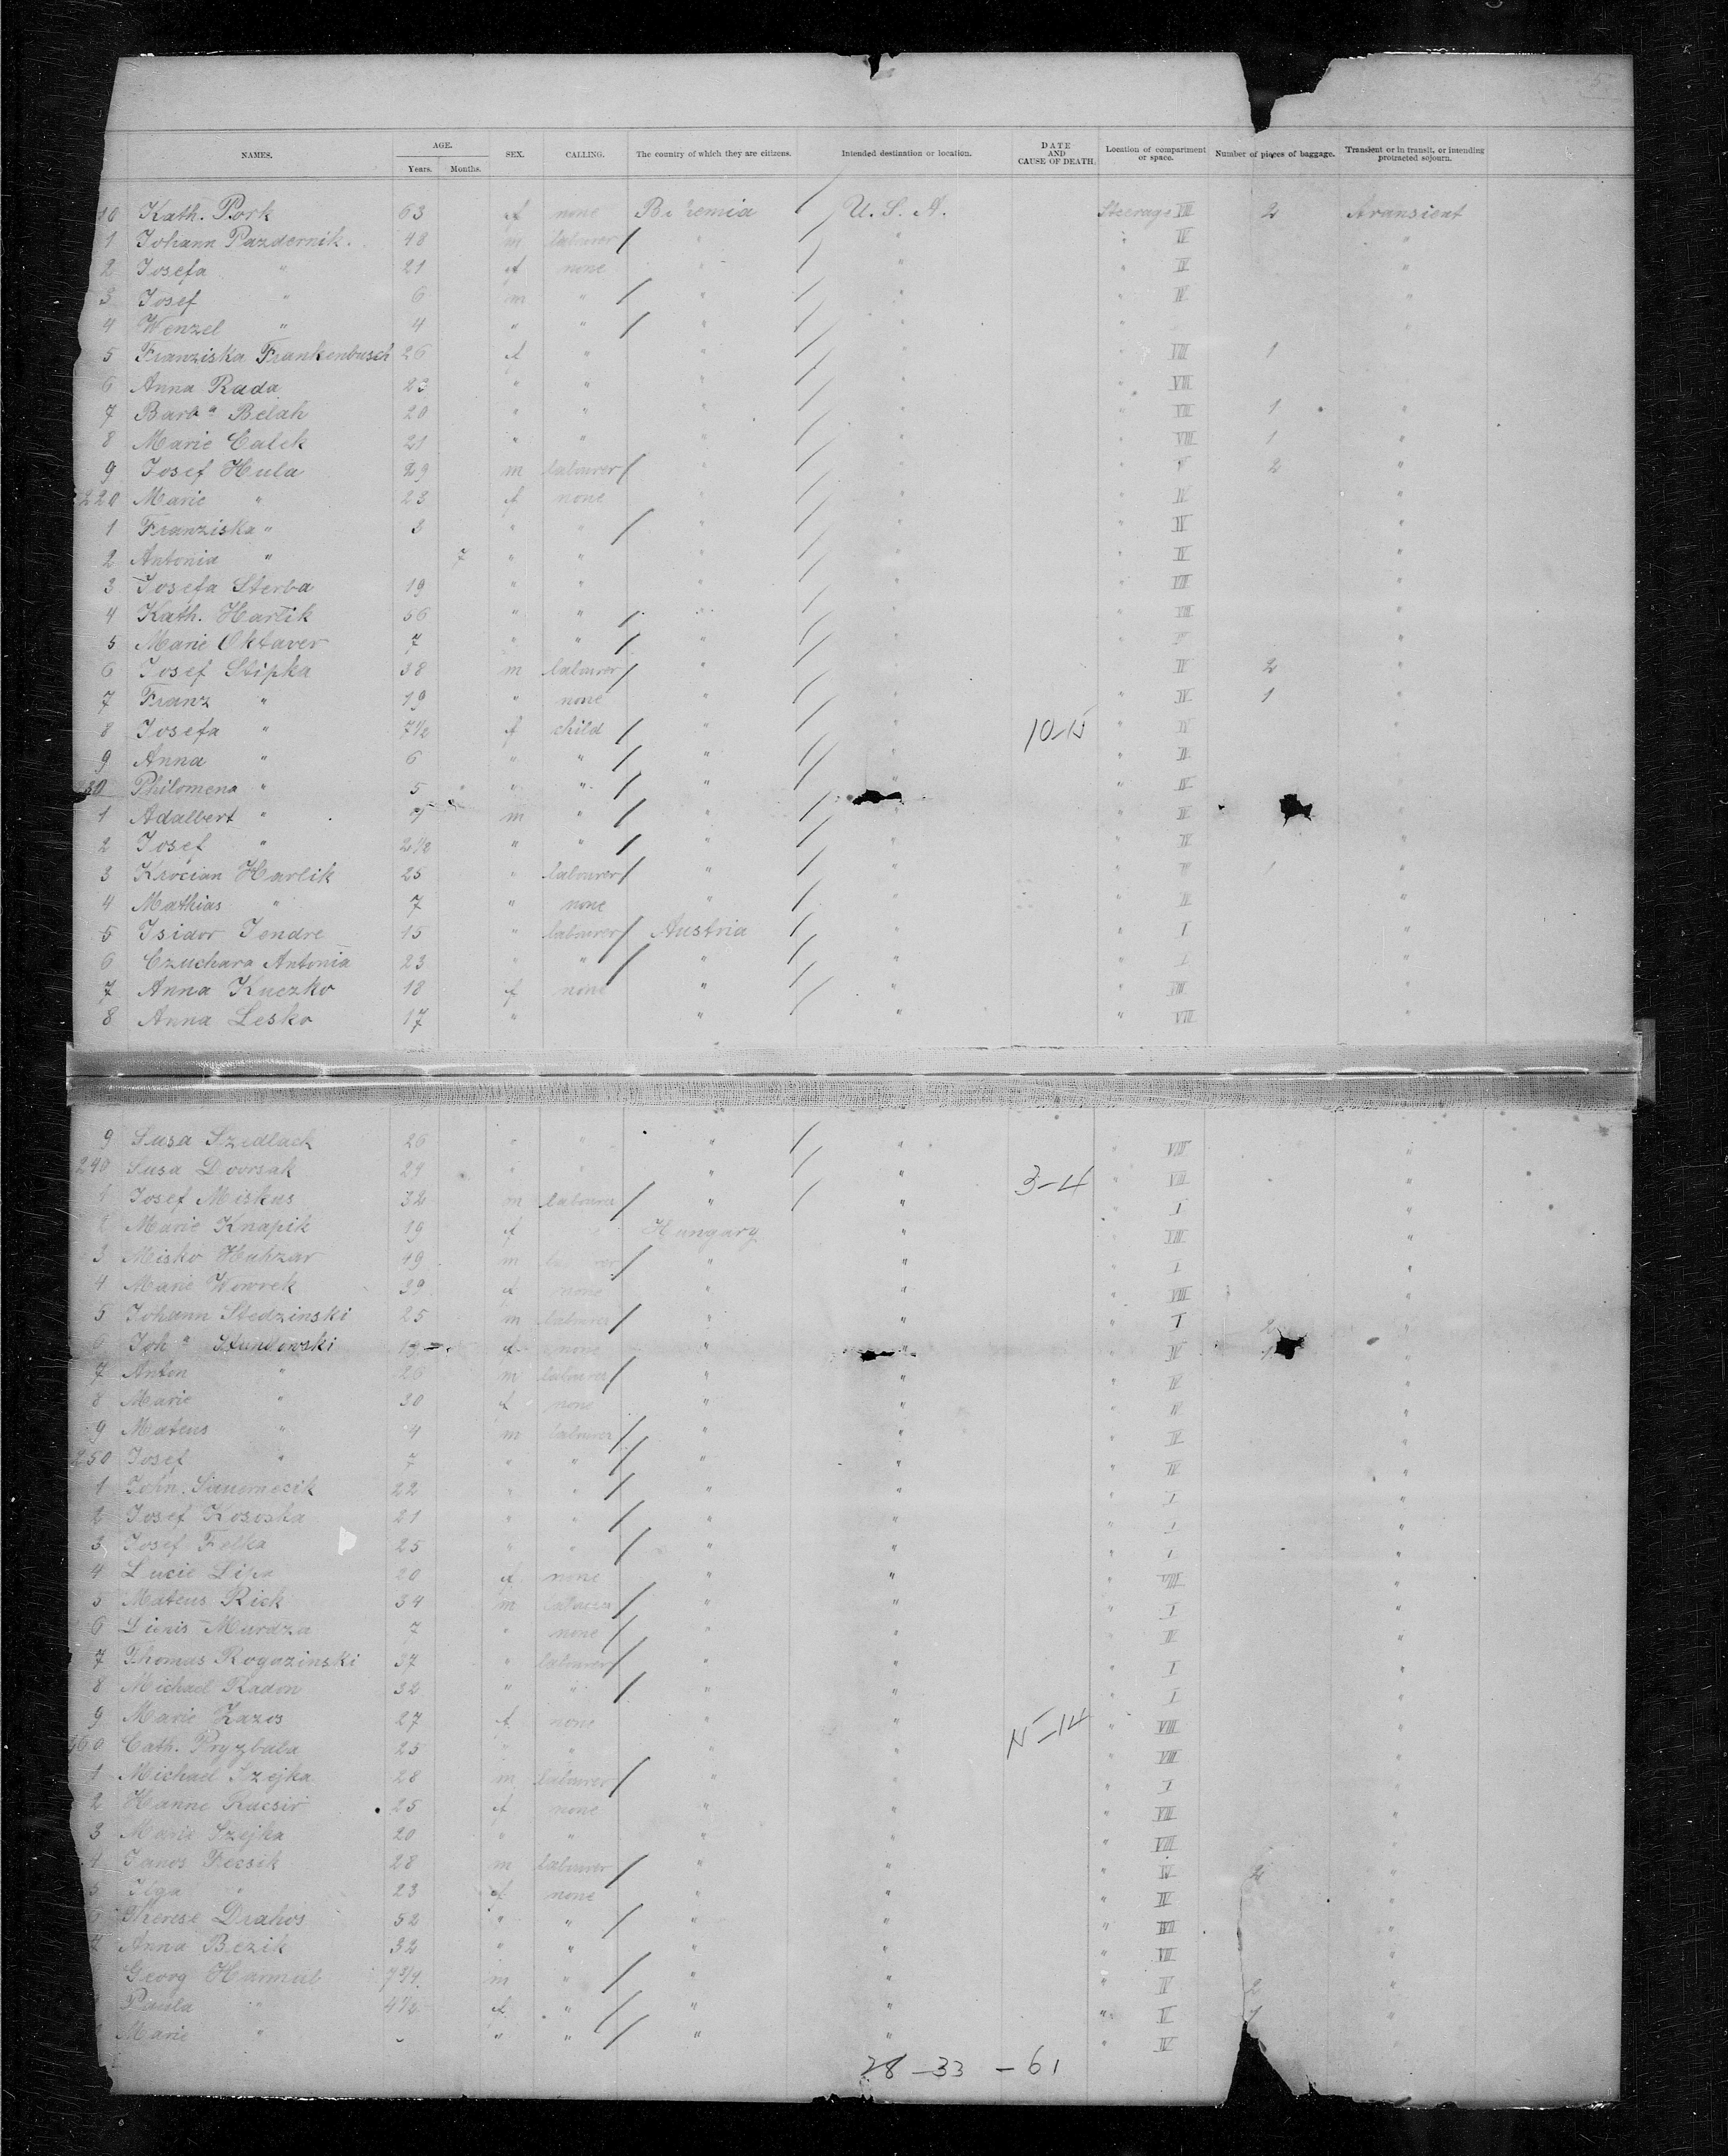 NAMES. AGE. Years. Months. SEX. CALLING. The country of which they are citizens. Intended destination or location. DATE AND CAUSE OF DEATH. Location of compartment or space. Number of pieces of baggage. Transient or in transit, or intending protracted sojourn.
10 Kath. Pork 63 f none Bohemia U. S. A. Steerage VIII 2 transient
1 Johann Pazdernik. 48 m labourer " " " IV "
2 Josefa " 21 f none " " " IV "
3 Josef " 6 m " " " " IV "
4 Wenzel " 4 " " " " "
5 Franziska Frankenbusch 26 f " " " " VIII 1
6 Anna Rada 23 " " " " " VIII
7 Barba Belah 20 " " " " " VIII 1 "
8 Marie Calek 21 " " " " " VIII 1 "
9 Josef Hula 29 m labourer " " " 2 "
220 Marie " 23 f none " " " IV "
1 Franziska " 3 " " " " " IV "
2 Antonia " 7 " " " " " IV "
3 Josefa Sterba 19 " " " " " VIII "
4 Kath. Harlik 56 " " " " " VIII "
5 Marie Oktaver 7 " " " " " "
6 Josef Stipka 38 m labourer " " " IV 2 "
7 Franz " 19 " none " " " IV 1 "
8 Josefa " 7 1/2 f child " " " IV "
9 Anna " 6 " " " " " IV
30 Philomena " 5 " " " " " IV
1 Adalbert " m " " " IV
2 Josef " 2 1/2 " " " " " IV "
3 Harlik 25 " labourer " " " 1 "
4 Mathias " 7 " none " " " IV "
5 Isidor Jendre 15 " labourer Austria " " I "
6 Czuchara Antonia 23 " " " " " I "
7 Anna Kuczko 18 f none " " " VIII "
8 Anna Lesko 17 " " " " VIII "
9 Susa Szedlack 26 " " " " " VIII "
240 Susa Dvorsak 29 " " " " 3-4 " VIII "
1 Josef Miskus 32 m labourer " " " I "
2 Marie Knapik 19 f Hungary " " VIII "
3 Misko Huhzar 49 m labourer " " " I "
4 Marie Wowrek 39 f none " " " VIII "
5 Johann Stedzinski 25 m labourer " " " I 2 "
6 Joha 19 f none " " " IV "
7 Anton " 26 m labourer " " " IV "
8 Marie " 30 f none " " " IV "
9 Mateus " 4 m labourer " " " IV "
250 Josef " 7 " " " " " IV "
1 John. 22 " " " " " I "
2 Josef Kososka 21 " " " " " I "
3 Josef Felka 25 " " " " " I "
4 Lucie Lipa 20 f none " " " VIII "
5 Mateus Rick 34 m labourer " " " I "
6 Murdza 7 " none " " " IV "
7 Thomas Rogazinski 37 " labourer " " " I "
8 Michael Radon 32 " " " " " I "
9 Marie Kazos 27 f none " " " VIII "
260 Cath. Pryzbala 25 " " " " " VIII "
1 Michael Szejka 28 m labourer " " " I "
2 Hanne Kucsir 25 f none " " " VIII "
3 Marie Szejka 20 " " " " " VIII "
4 Janos Fecsik 28 m labourer " " " IV 2 "
5 Ilga " 23 f none " " " IV "
6 Therese Drahos 52 " " " " " VIII "
7 Anna Bezik 32 " " " " " VIII "
Georg Harmúl 7 3/4 m " " " " IV 2 "
Paula " 4 1/2 f " " " " IV 1 "
Marie " - " " " " " IV
28 - 33 - 61